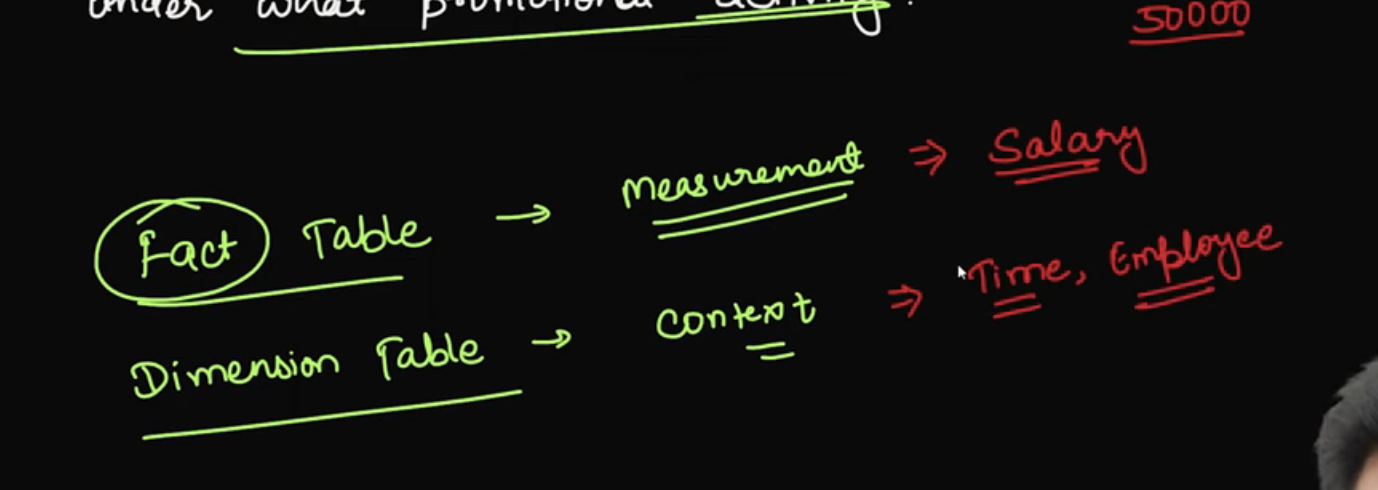 under what promotional activity?
50000
Fact Table → Measurement ⇒ Salary
Dimension Table → Context ⇒ Time, Employee